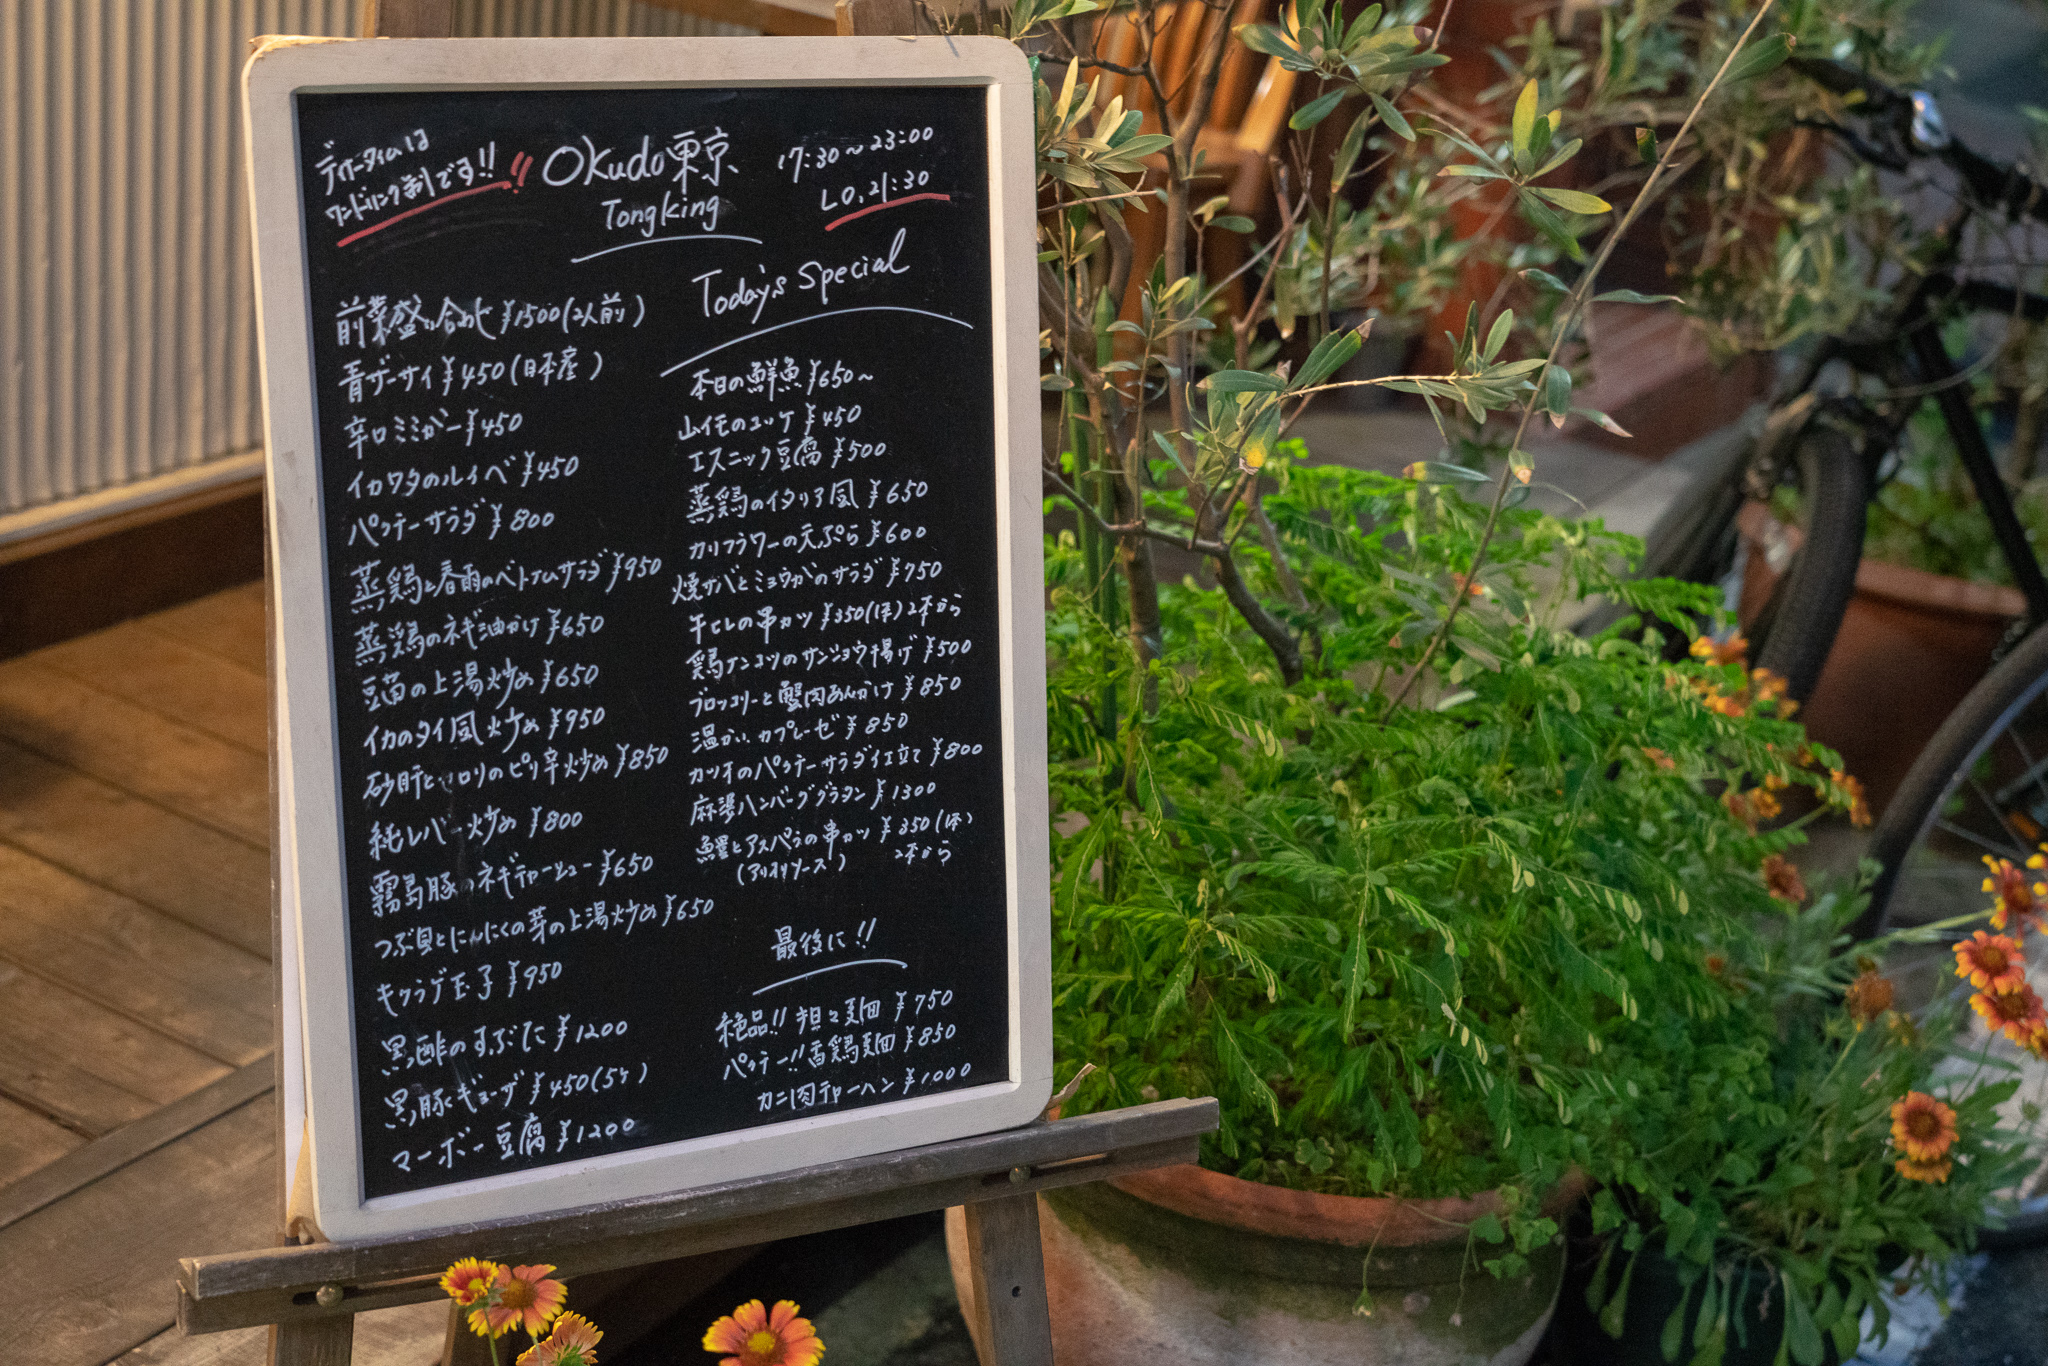 ディナータイムは
ワンドリンク制です!!
Okudo東京
Tongking
17:30~23:00
L O, 21:30
前菜盛り合わせ ¥1500(2人前)
青ザーサイ ¥450(日本産)
辛口ミミガー ¥450
イカワタのルイベ ¥450
パクチーサラダ ¥800
蒸し鶏と春雨のベトナムサラダ ¥950
蒸し鶏のネギ油かけ ¥650
豆苗の上湯炒め ¥650
イカのタイ風炒め ¥950
砂肝とセロリのピリ辛炒め ¥850
純レバー炒め ¥800
霧島豚のネギチャーシュー ¥650
つぶ貝とにんにくの芽の上湯炒め ¥650
キクラゲ玉子 ¥950
黒酢のすぶた ¥1200
黒豚ギョーザ ¥450(5ケ)
マーボー豆腐 ¥1200
Today's Special
本日の鮮魚 ¥650~
山イモのユッケ ¥450
エスニック豆腐 ¥500
蒸し鶏のイタリア風 ¥650
カリフラワーの天ぷら ¥600
焼サバとミョウガのサラダ ¥750
牛ヒレの串カツ ¥350(1本) 2本から
鶏ナンコツのサンショウ揚げ ¥500
ブロッコリーと蟹肉あんかけ ¥850
温かいカプレーゼ ¥850
カツオのパクチーサラダ仕立て ¥800
麻婆ハンバーググラタン ¥1300
鱧とアスパラの串カツ ¥350(1本)
(アリオリソース) 2本から
最後に!!
絶品!! 担々麺 ¥750
パクチー!! 香鶏麺 ¥850
カニ肉チャーハン ¥1000